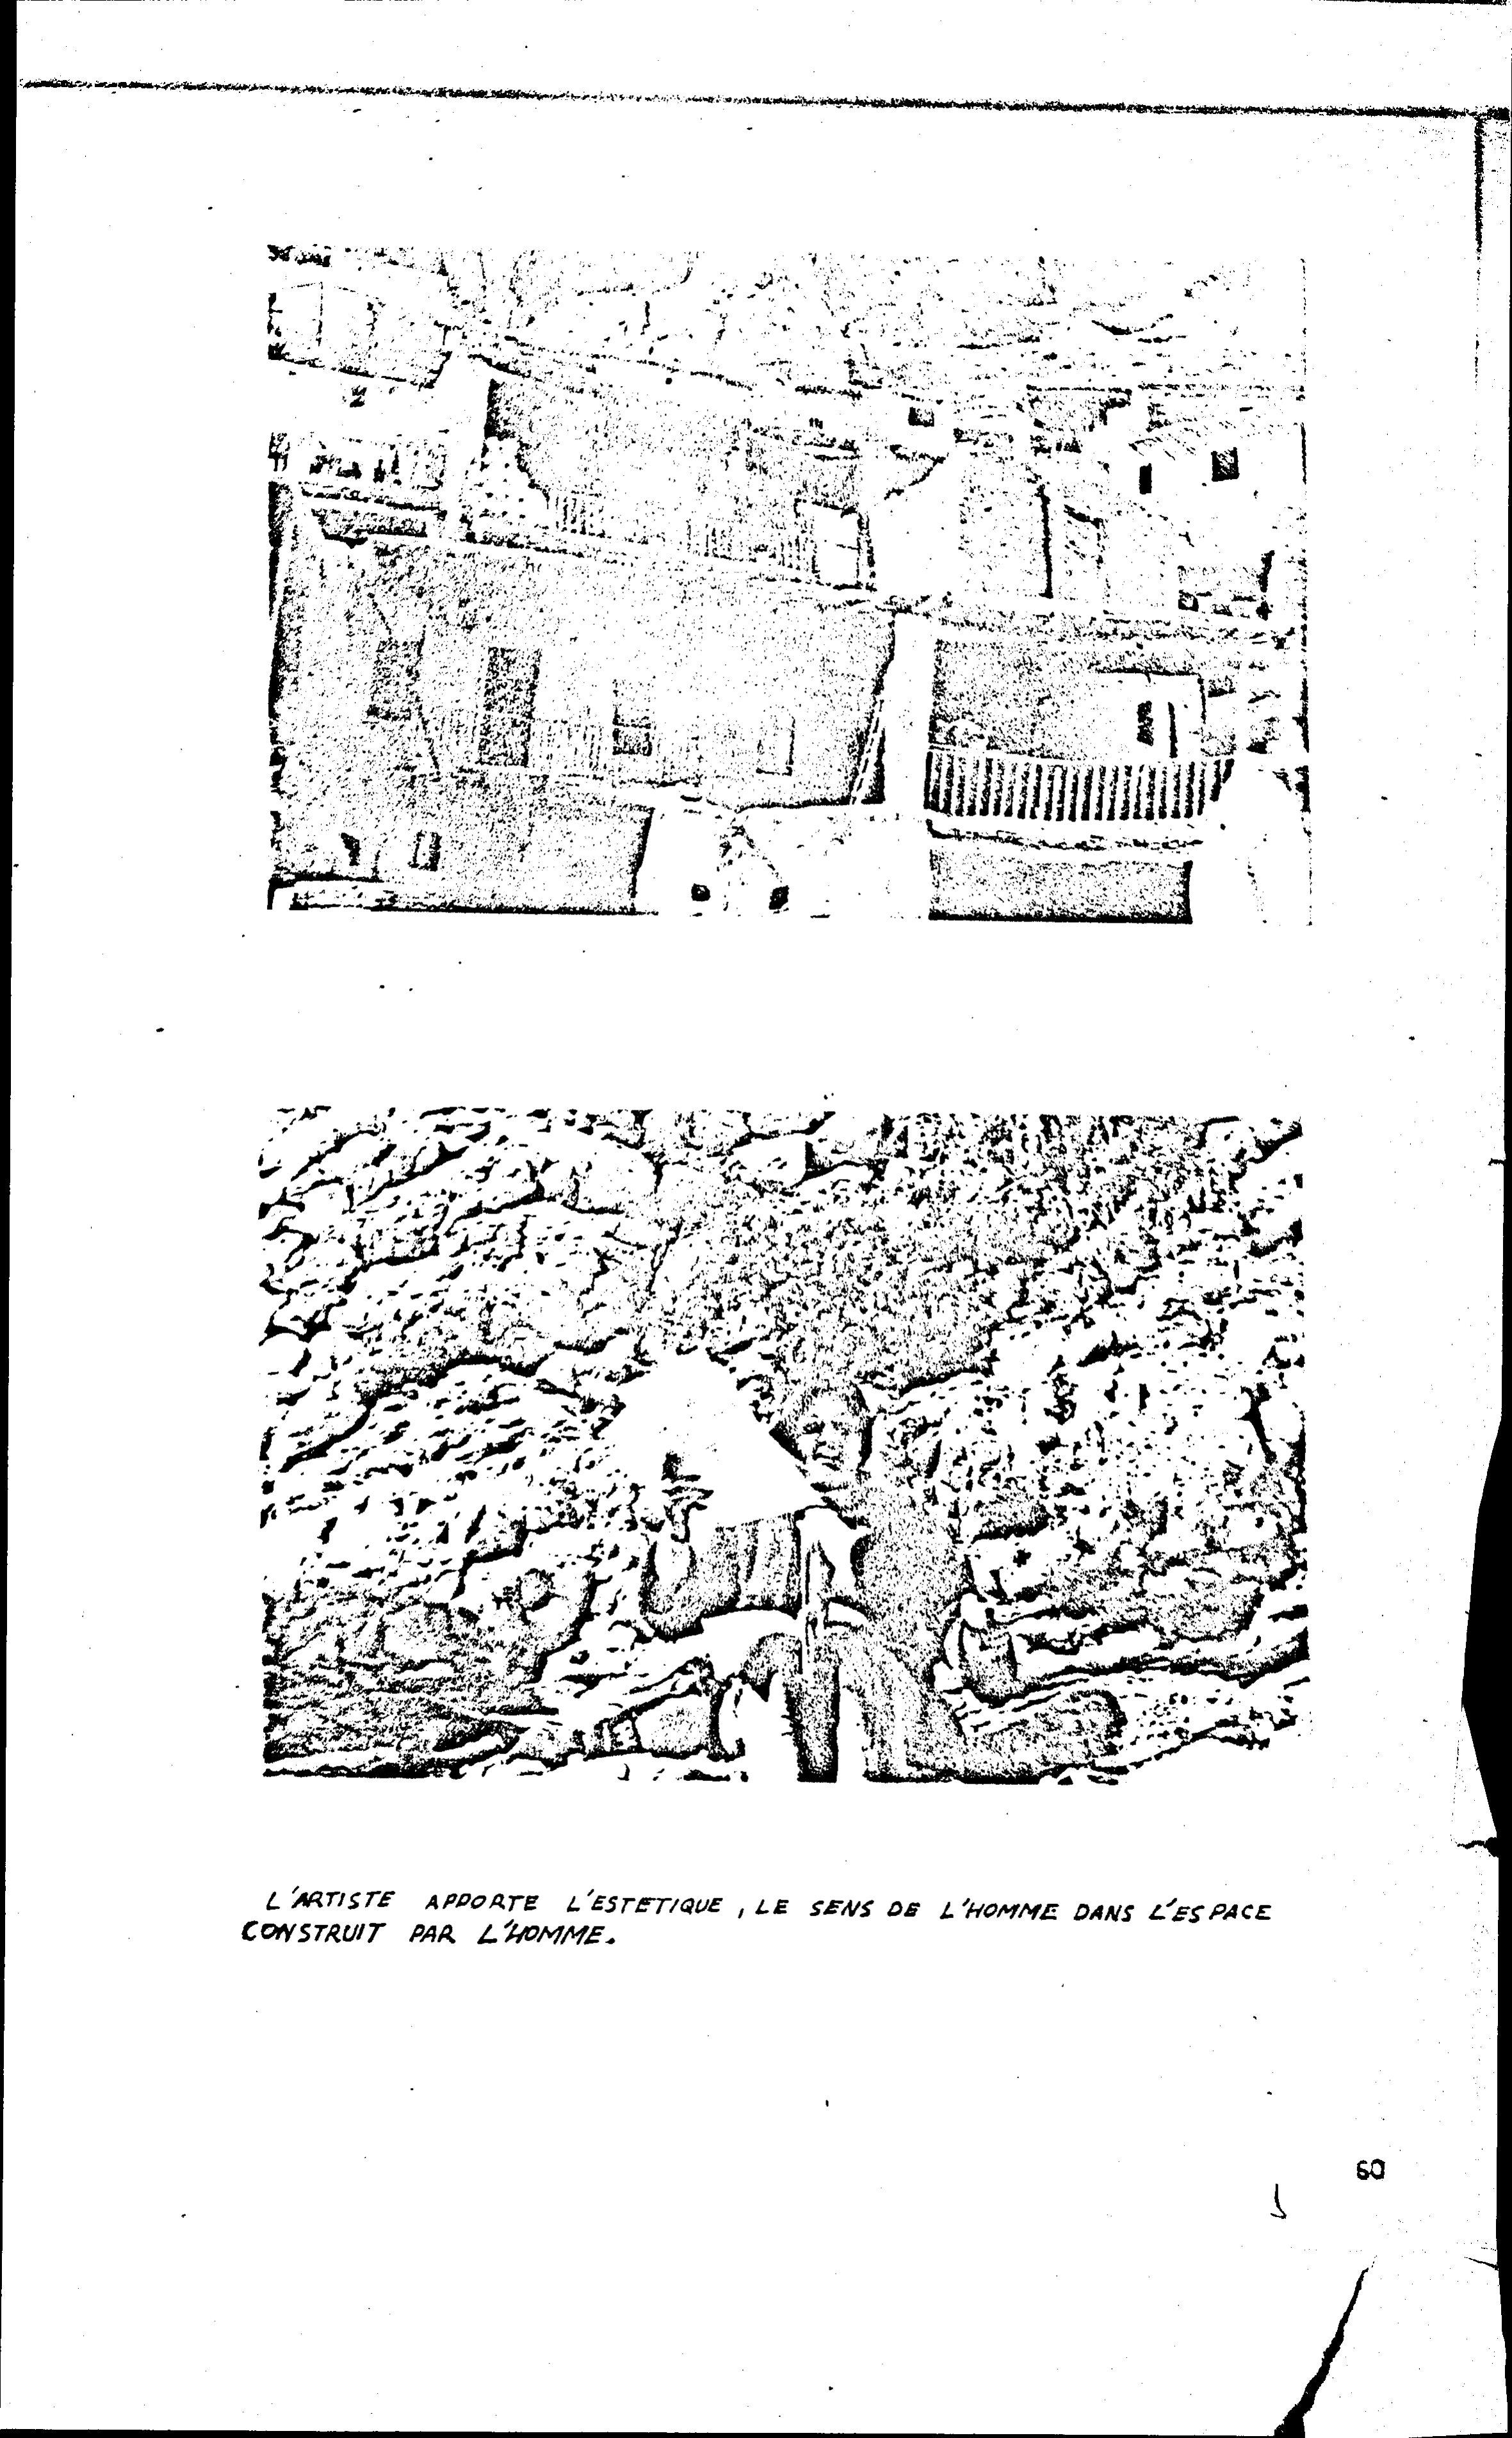 L'ARTISTE APPORTE L'ESTETIQUE, LE SENS DE L'HOMME DANS L'ESPACE
CONSTRUIT PAR L'HOMME.
60